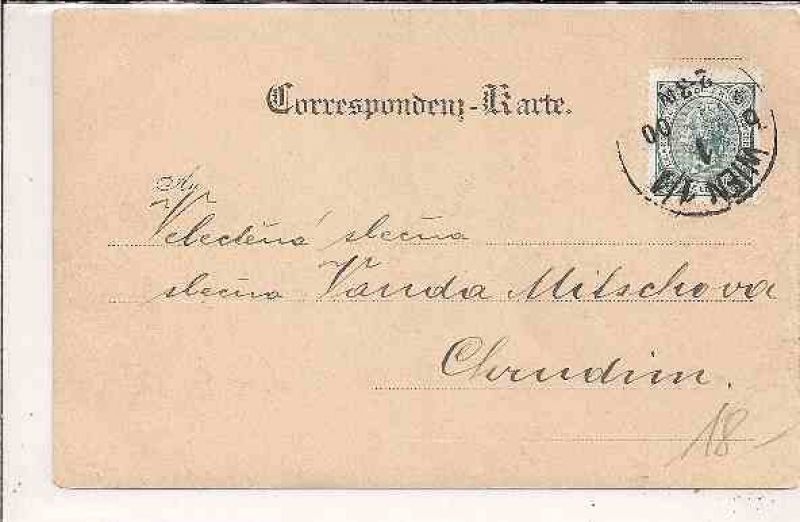 Correspondenz-Karte.
WIEN 1/1
An
Velectěná slečna
slečna Vanda Mitschova
Chrudim.
18